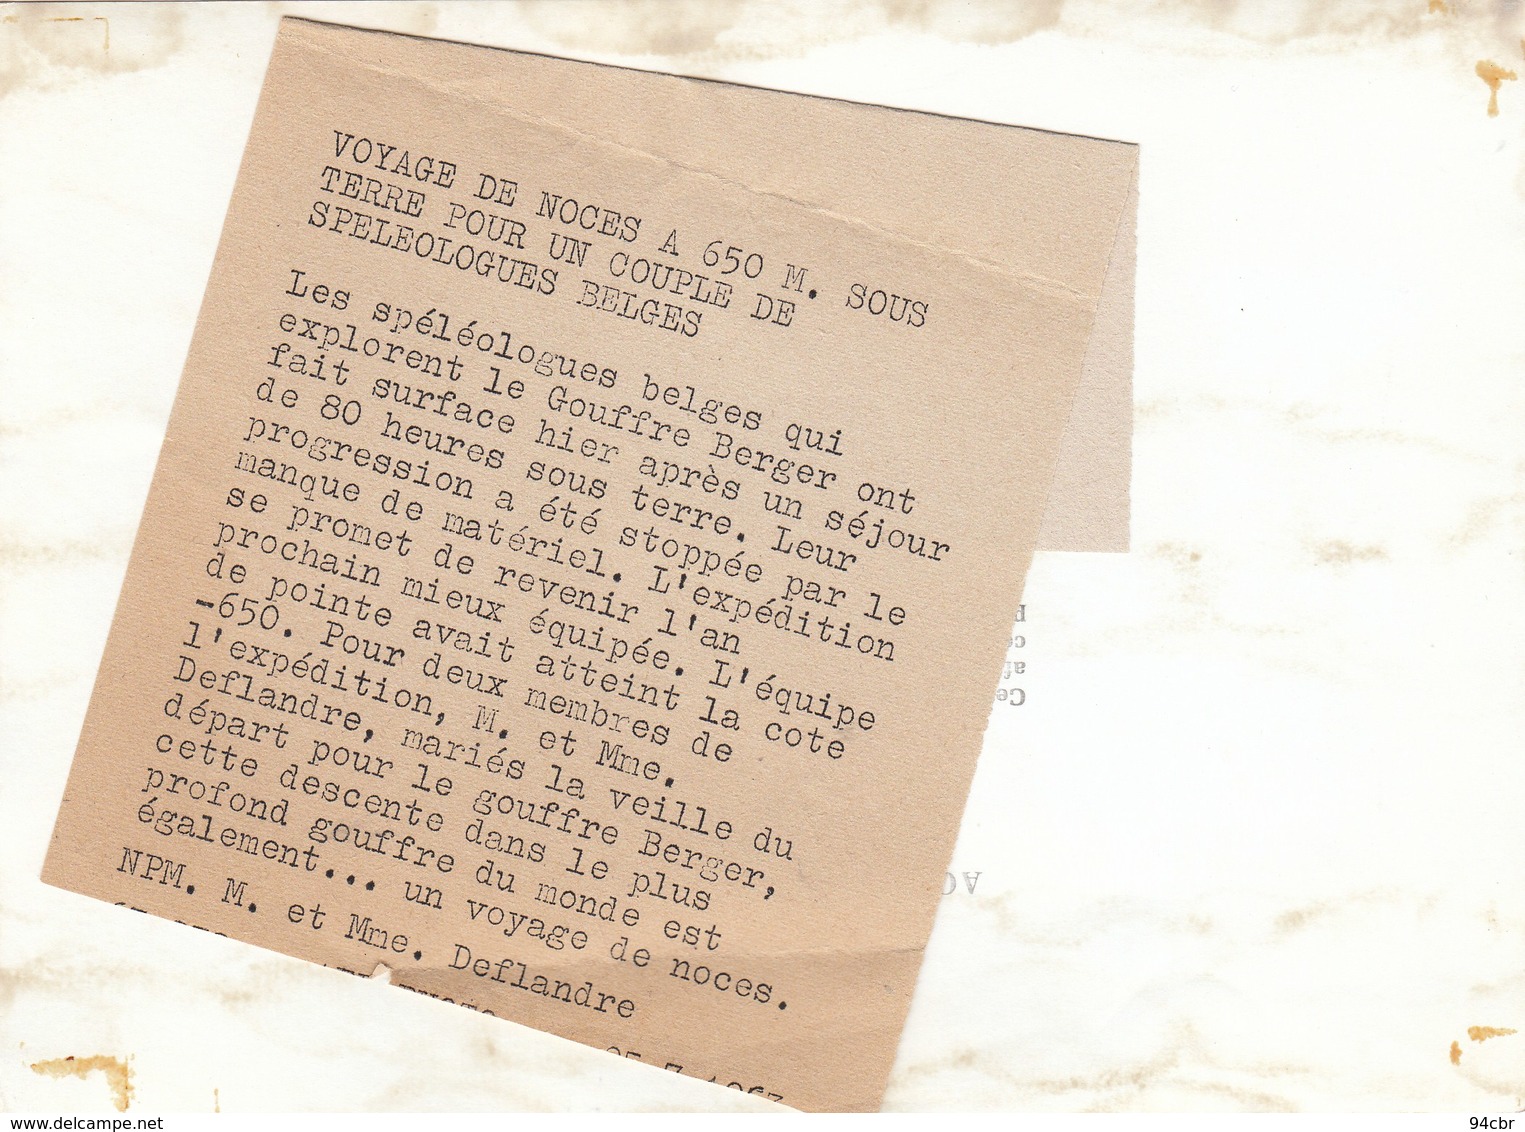 VOYAGE DE NOCES A 650 M. SOUS
TERRE POUR UN COUPLE DE
SPELEOLOGUES BELGES
Les spéléologues belges qui
explorent le Gouffre Berger ont
fait surface hier après un séjour
de 80 heures sous terre. Leur
progression a été stoppée par le
manque de matériel. L'expédition
se promet de revenir l'an
prochain mieux équipée. L'équipe
de pointe avait atteint la cote
-650. Pour deux membres de
l'expédition, M. et Mme.
Deflandre, mariés la veille du
départ pour le gouffre Berger,
cette descente dans le plus
profond gouffre du monde est
également... un voyage de noces.
NPM. M. et Mme. Deflandre
delcampe.net
94cbr